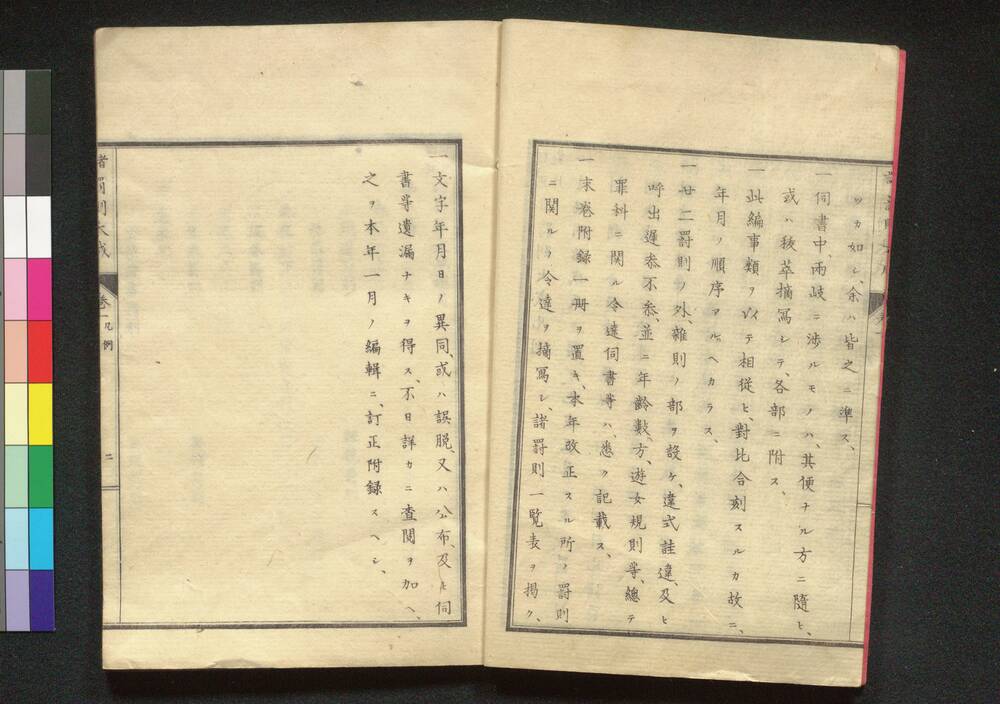 ツカ如シ、余ハ皆之ニ準ス、
一伺書中、両岐ニ渉ルモノハ、其便ナル方ニ随ヒ、
或ハ抜萃摘写シテ、各部ニ附ス、
一此編事類ヲ以テ相従ヒ、対比合刻スルカ故ニ、
年月ノ順序アルヘカラス、
一廿二罰則ノ外、雑則ノ部ヲ設ケ、違式詿違、及ヒ
呼出遅参不参、並ニ年齢数方、遊女規則等、總テ
罪科ニ関ル令達伺書等ハ、悉ク記載ス、
一末巻附録一冊ヲ置キ、本年改正スル所ノ罰則
ニ関ルノ令達ヲ摘写シ、諸罰則一覧表ヲ掲ク、
一文字年月日ノ異同、或ハ誤脱、又ハ公布、及ヒ伺
書等遺漏ナキヲ得ス、不日詳カニ査閲ヲ加ヘ、
之ヲ本年一月ノ編輯ニ、訂正附録スヘシ、
諸罰則大成 巻一 凡例 二